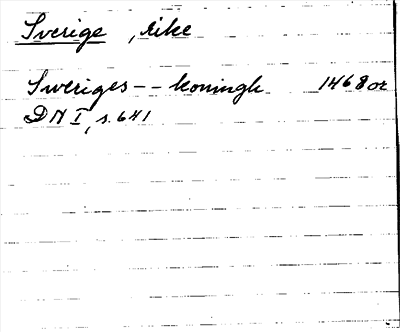 Sverige, rike
Sweriges -- koningh 1468 or
DN I, s. 641